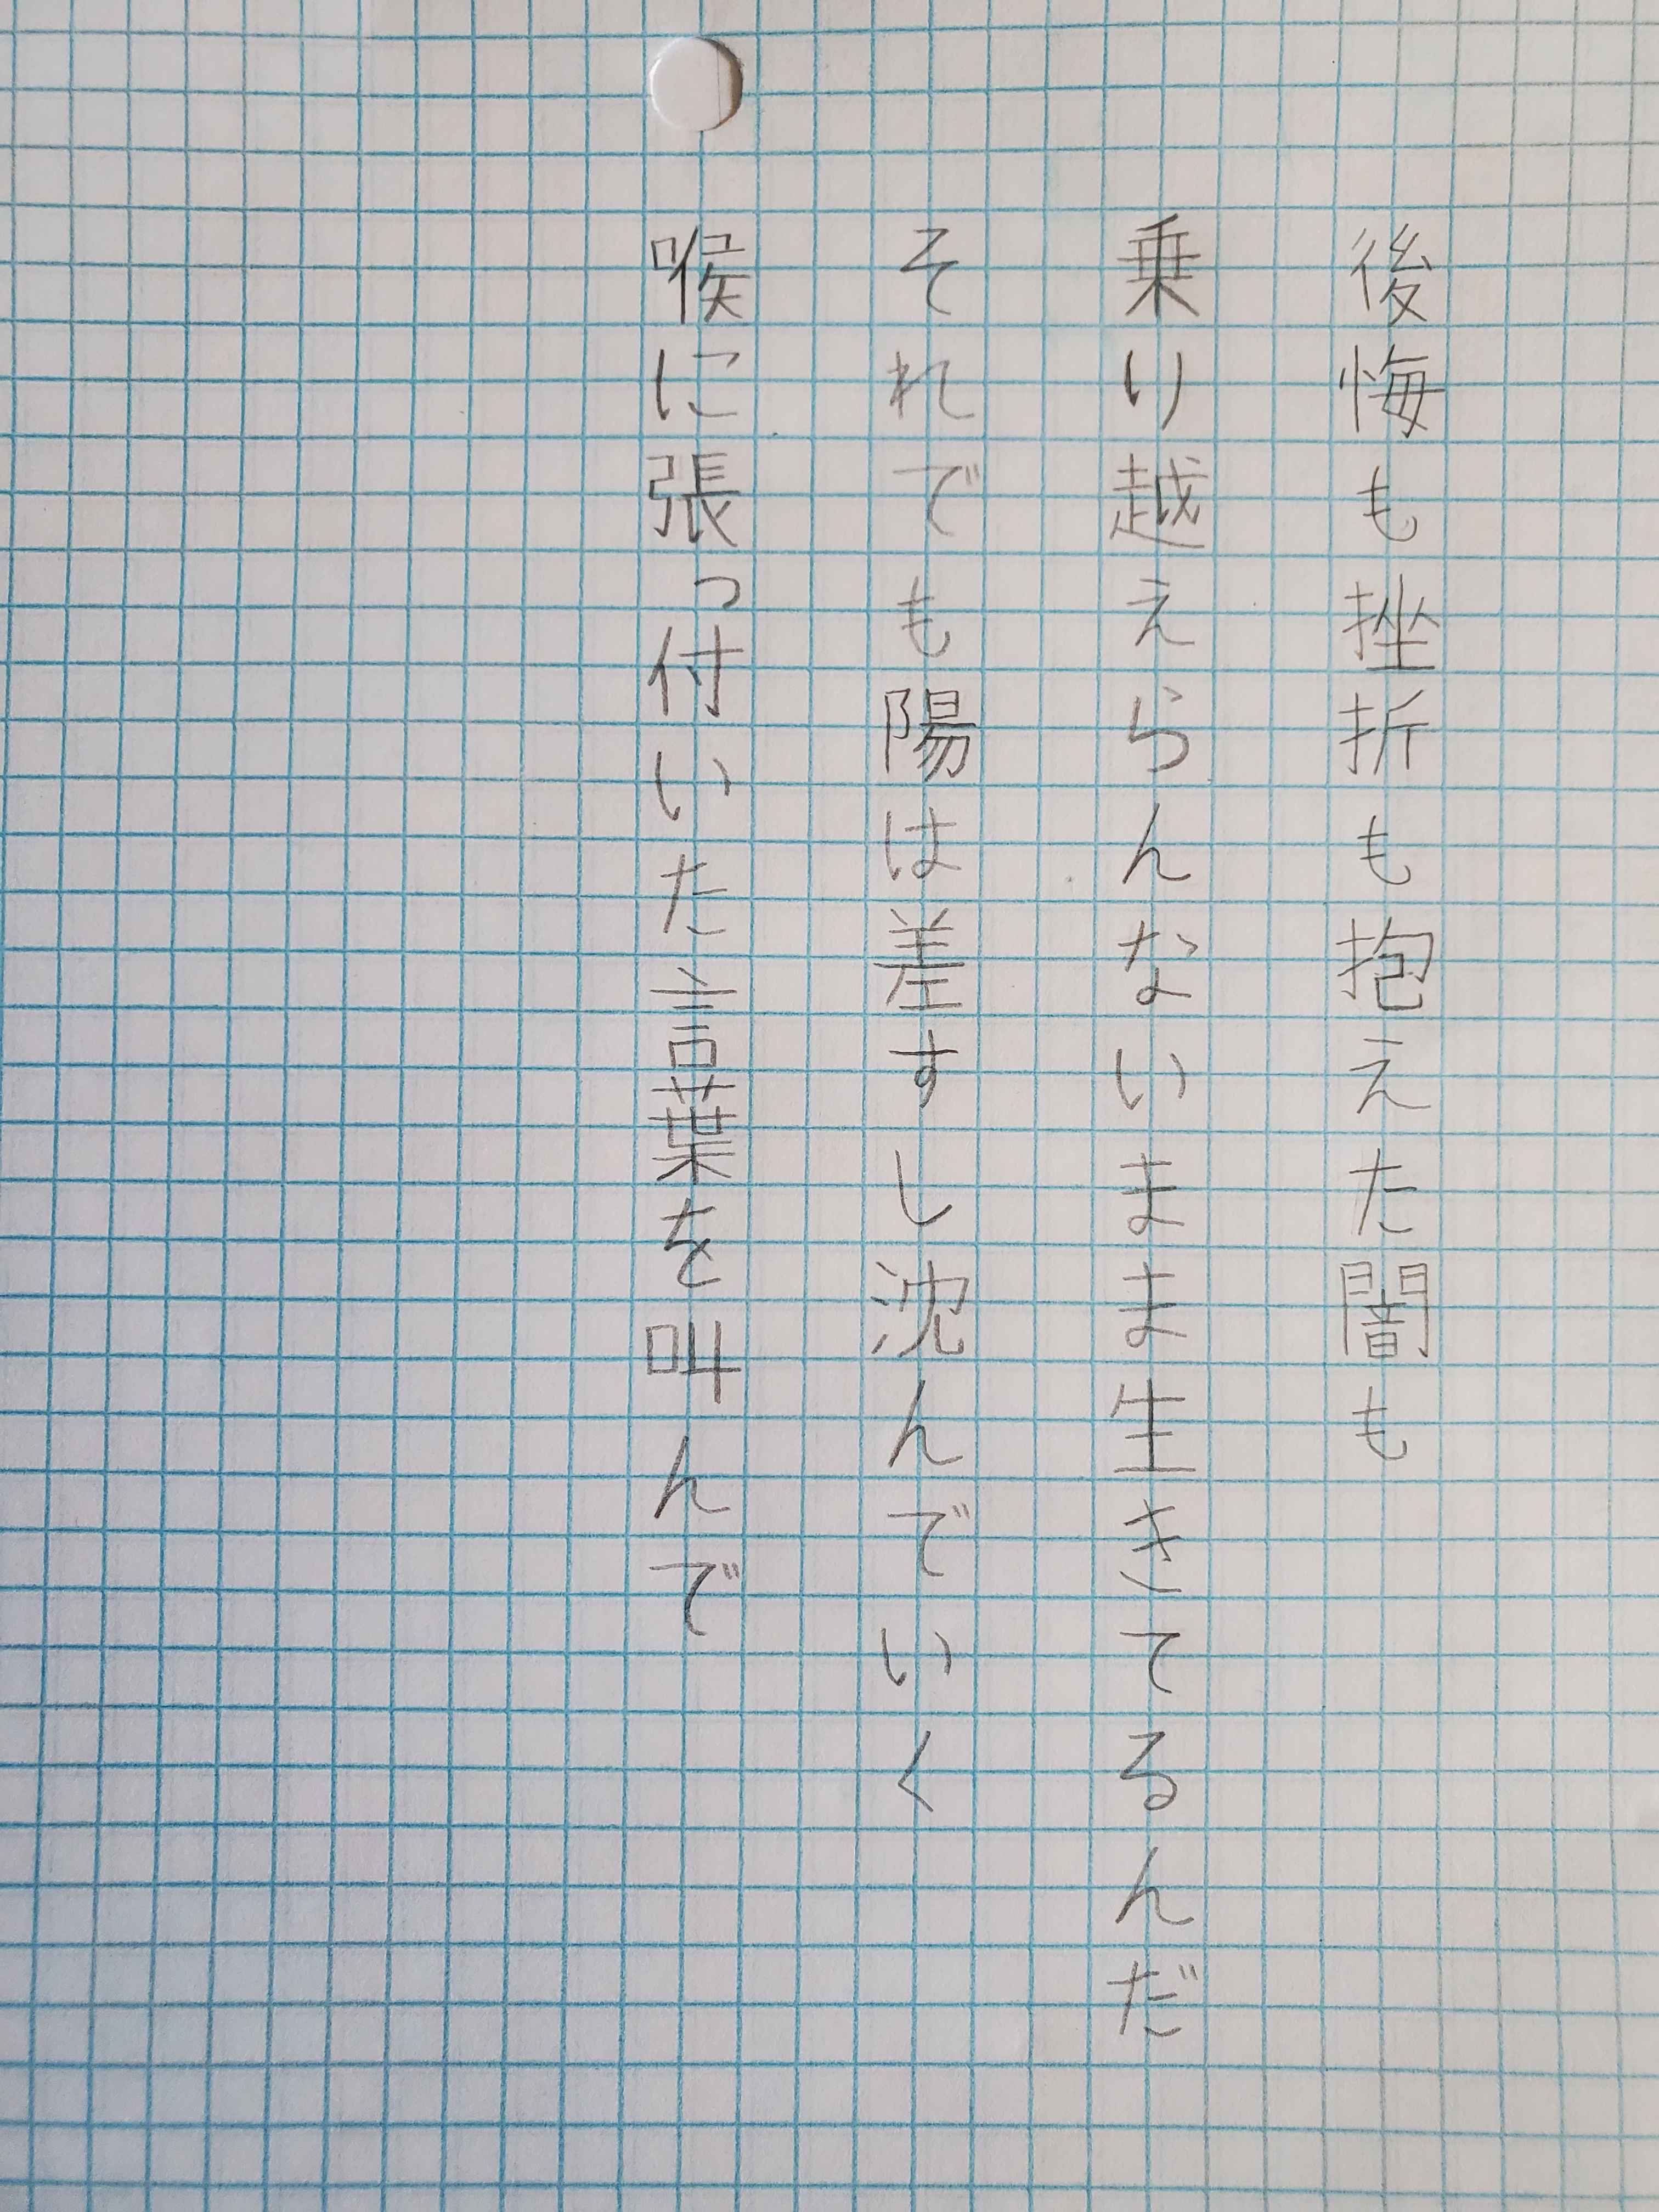 後悔も挫折も抱えた闇も
乗り越えらんないまま生きてるんだ
それでも陽は差すし沈んでいく
喉に張っ付いた言葉を叫んで